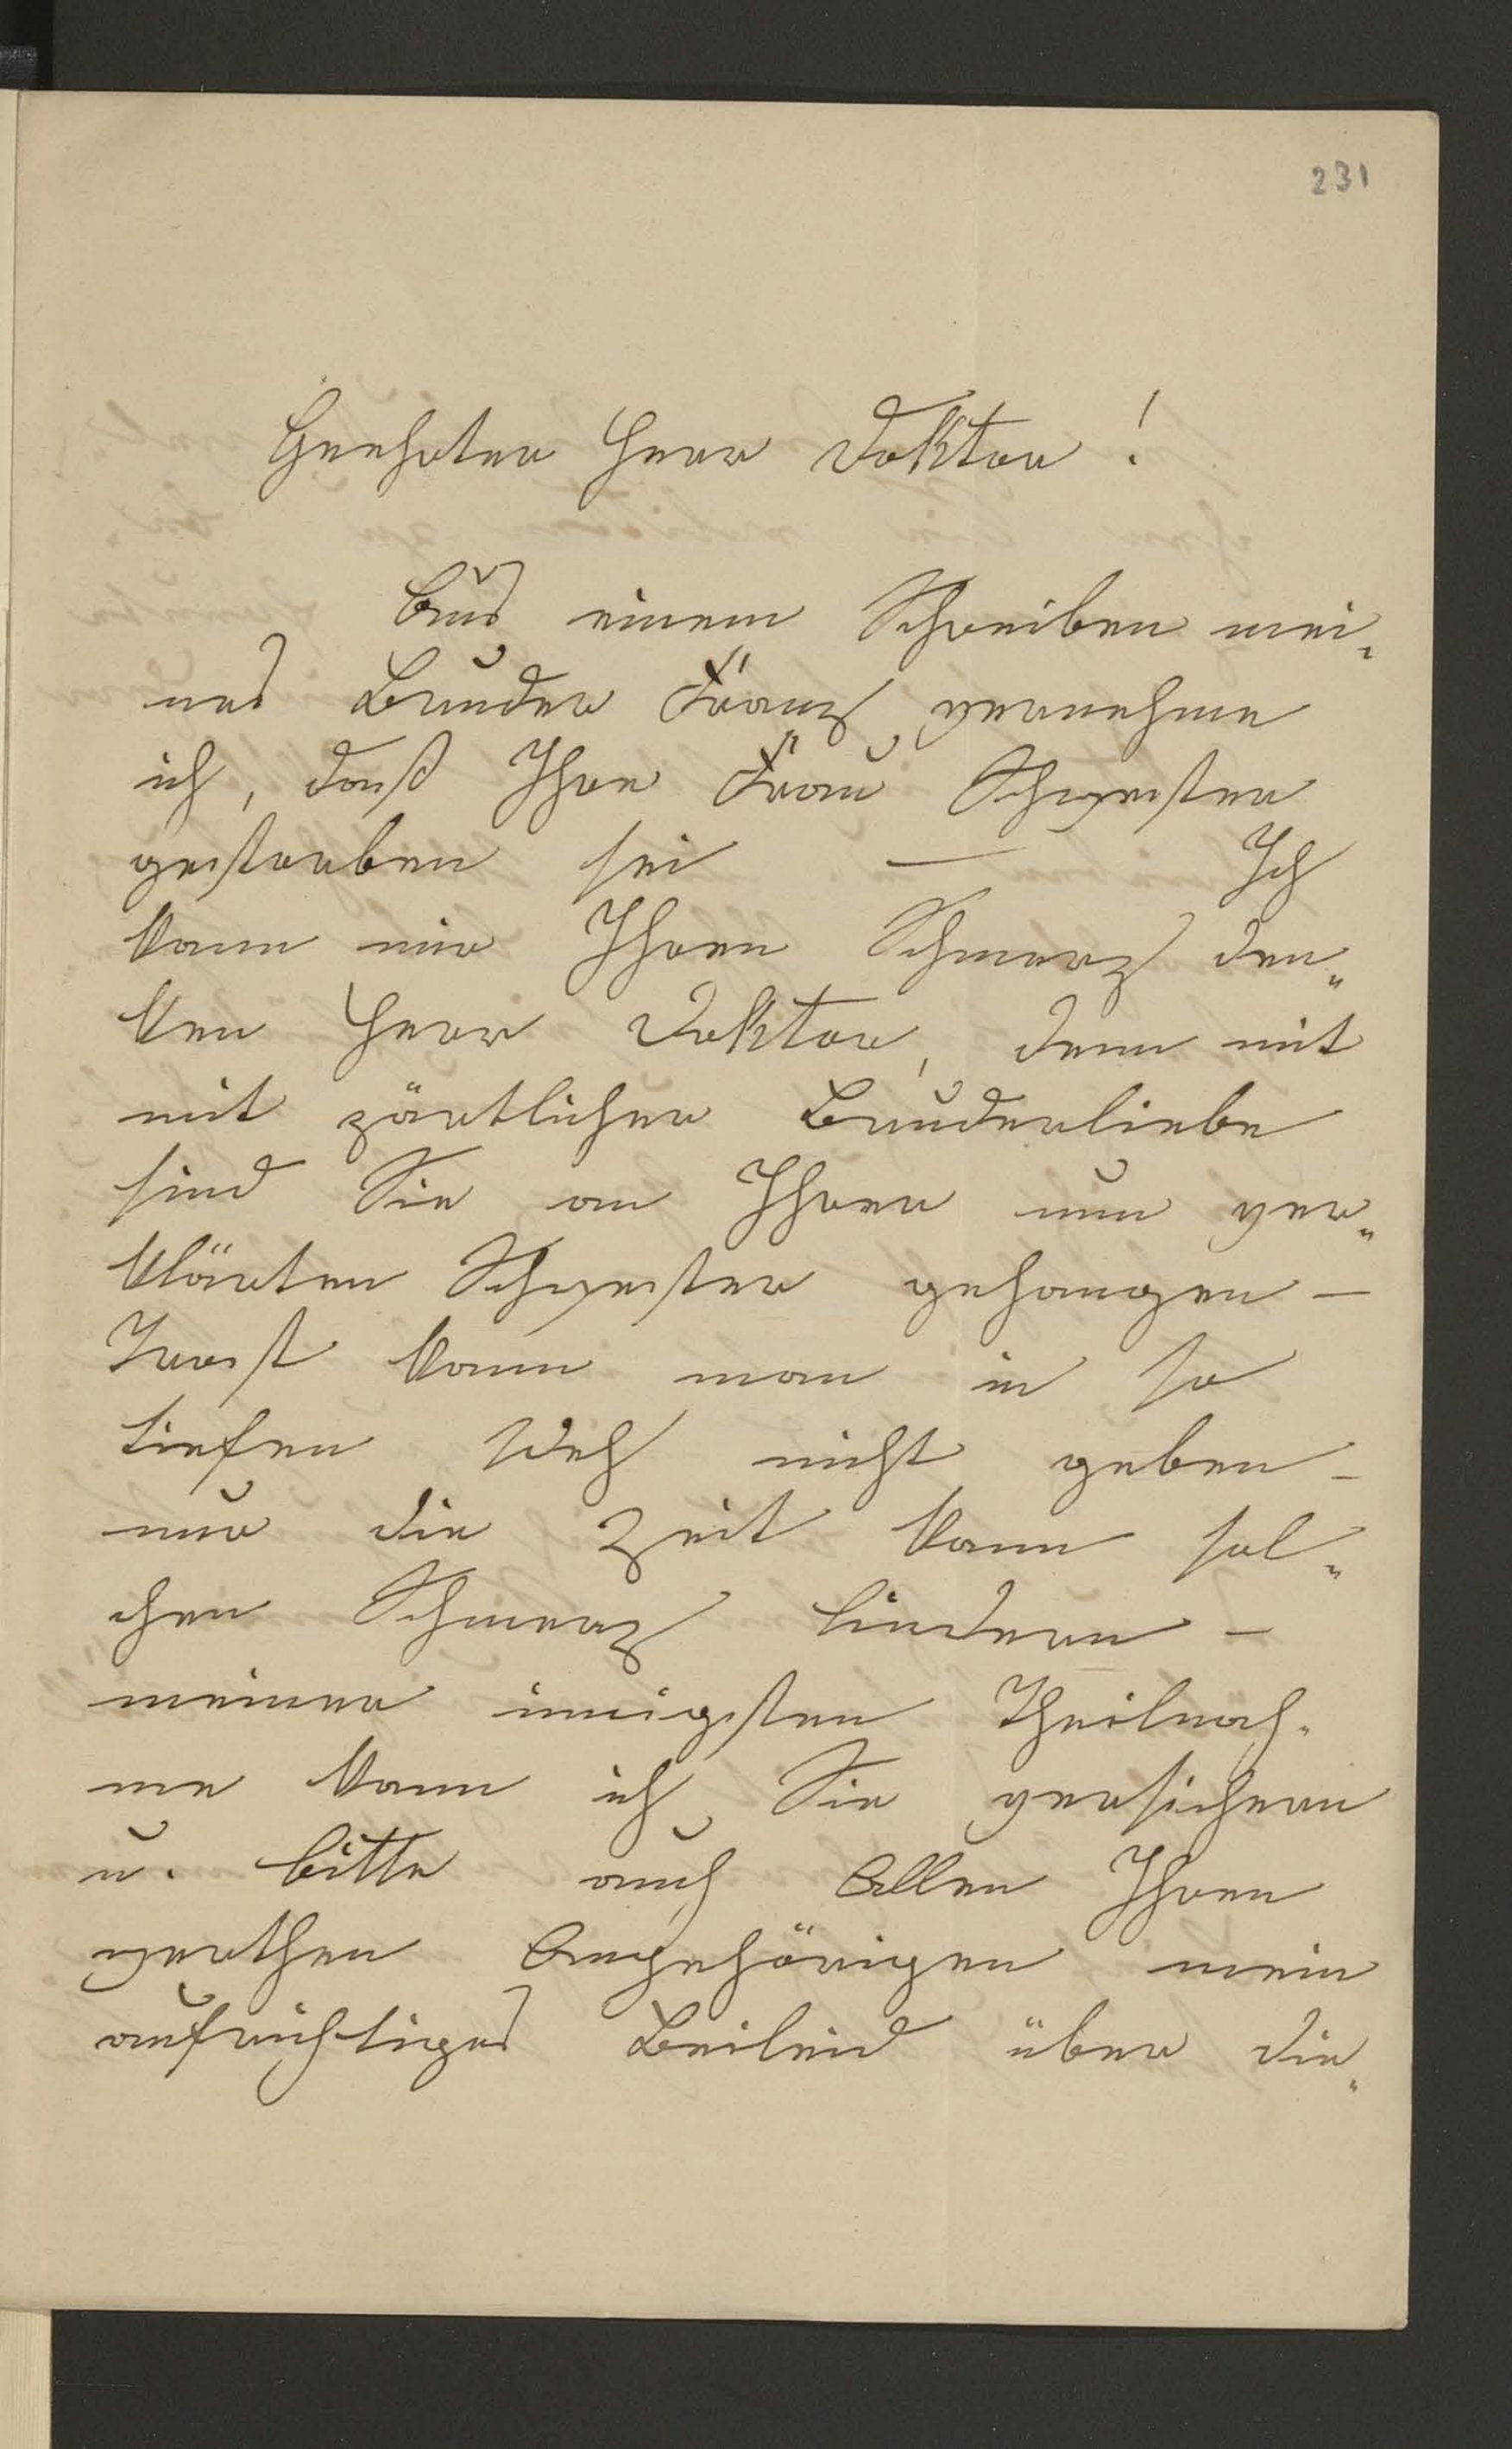 231
Geehrter Herr Doktor!
Aus einem Schreiben mei-
nes Bruder Franz vernehme
ich, daß Ihre Frau Schwester
gestorben sei — Ich
kann mir Ihren Schmerz den-
ken Herr Doktor, denn mit
mit zärtlicher Bruderliebe
sind Sie an Ihrer nun ver-
klärten Schwester gehangen –
Trost kann man in so
tiefen Weh nicht geben –
nur die Zeit kann sol-
chen Schmerz lindern –
meiner innigsten Theilnah-
me kann ich Sie versichern
u. bitte auch Allen Ihren
werthen Angehörigen mein
aufrichtiges Beileid über die-